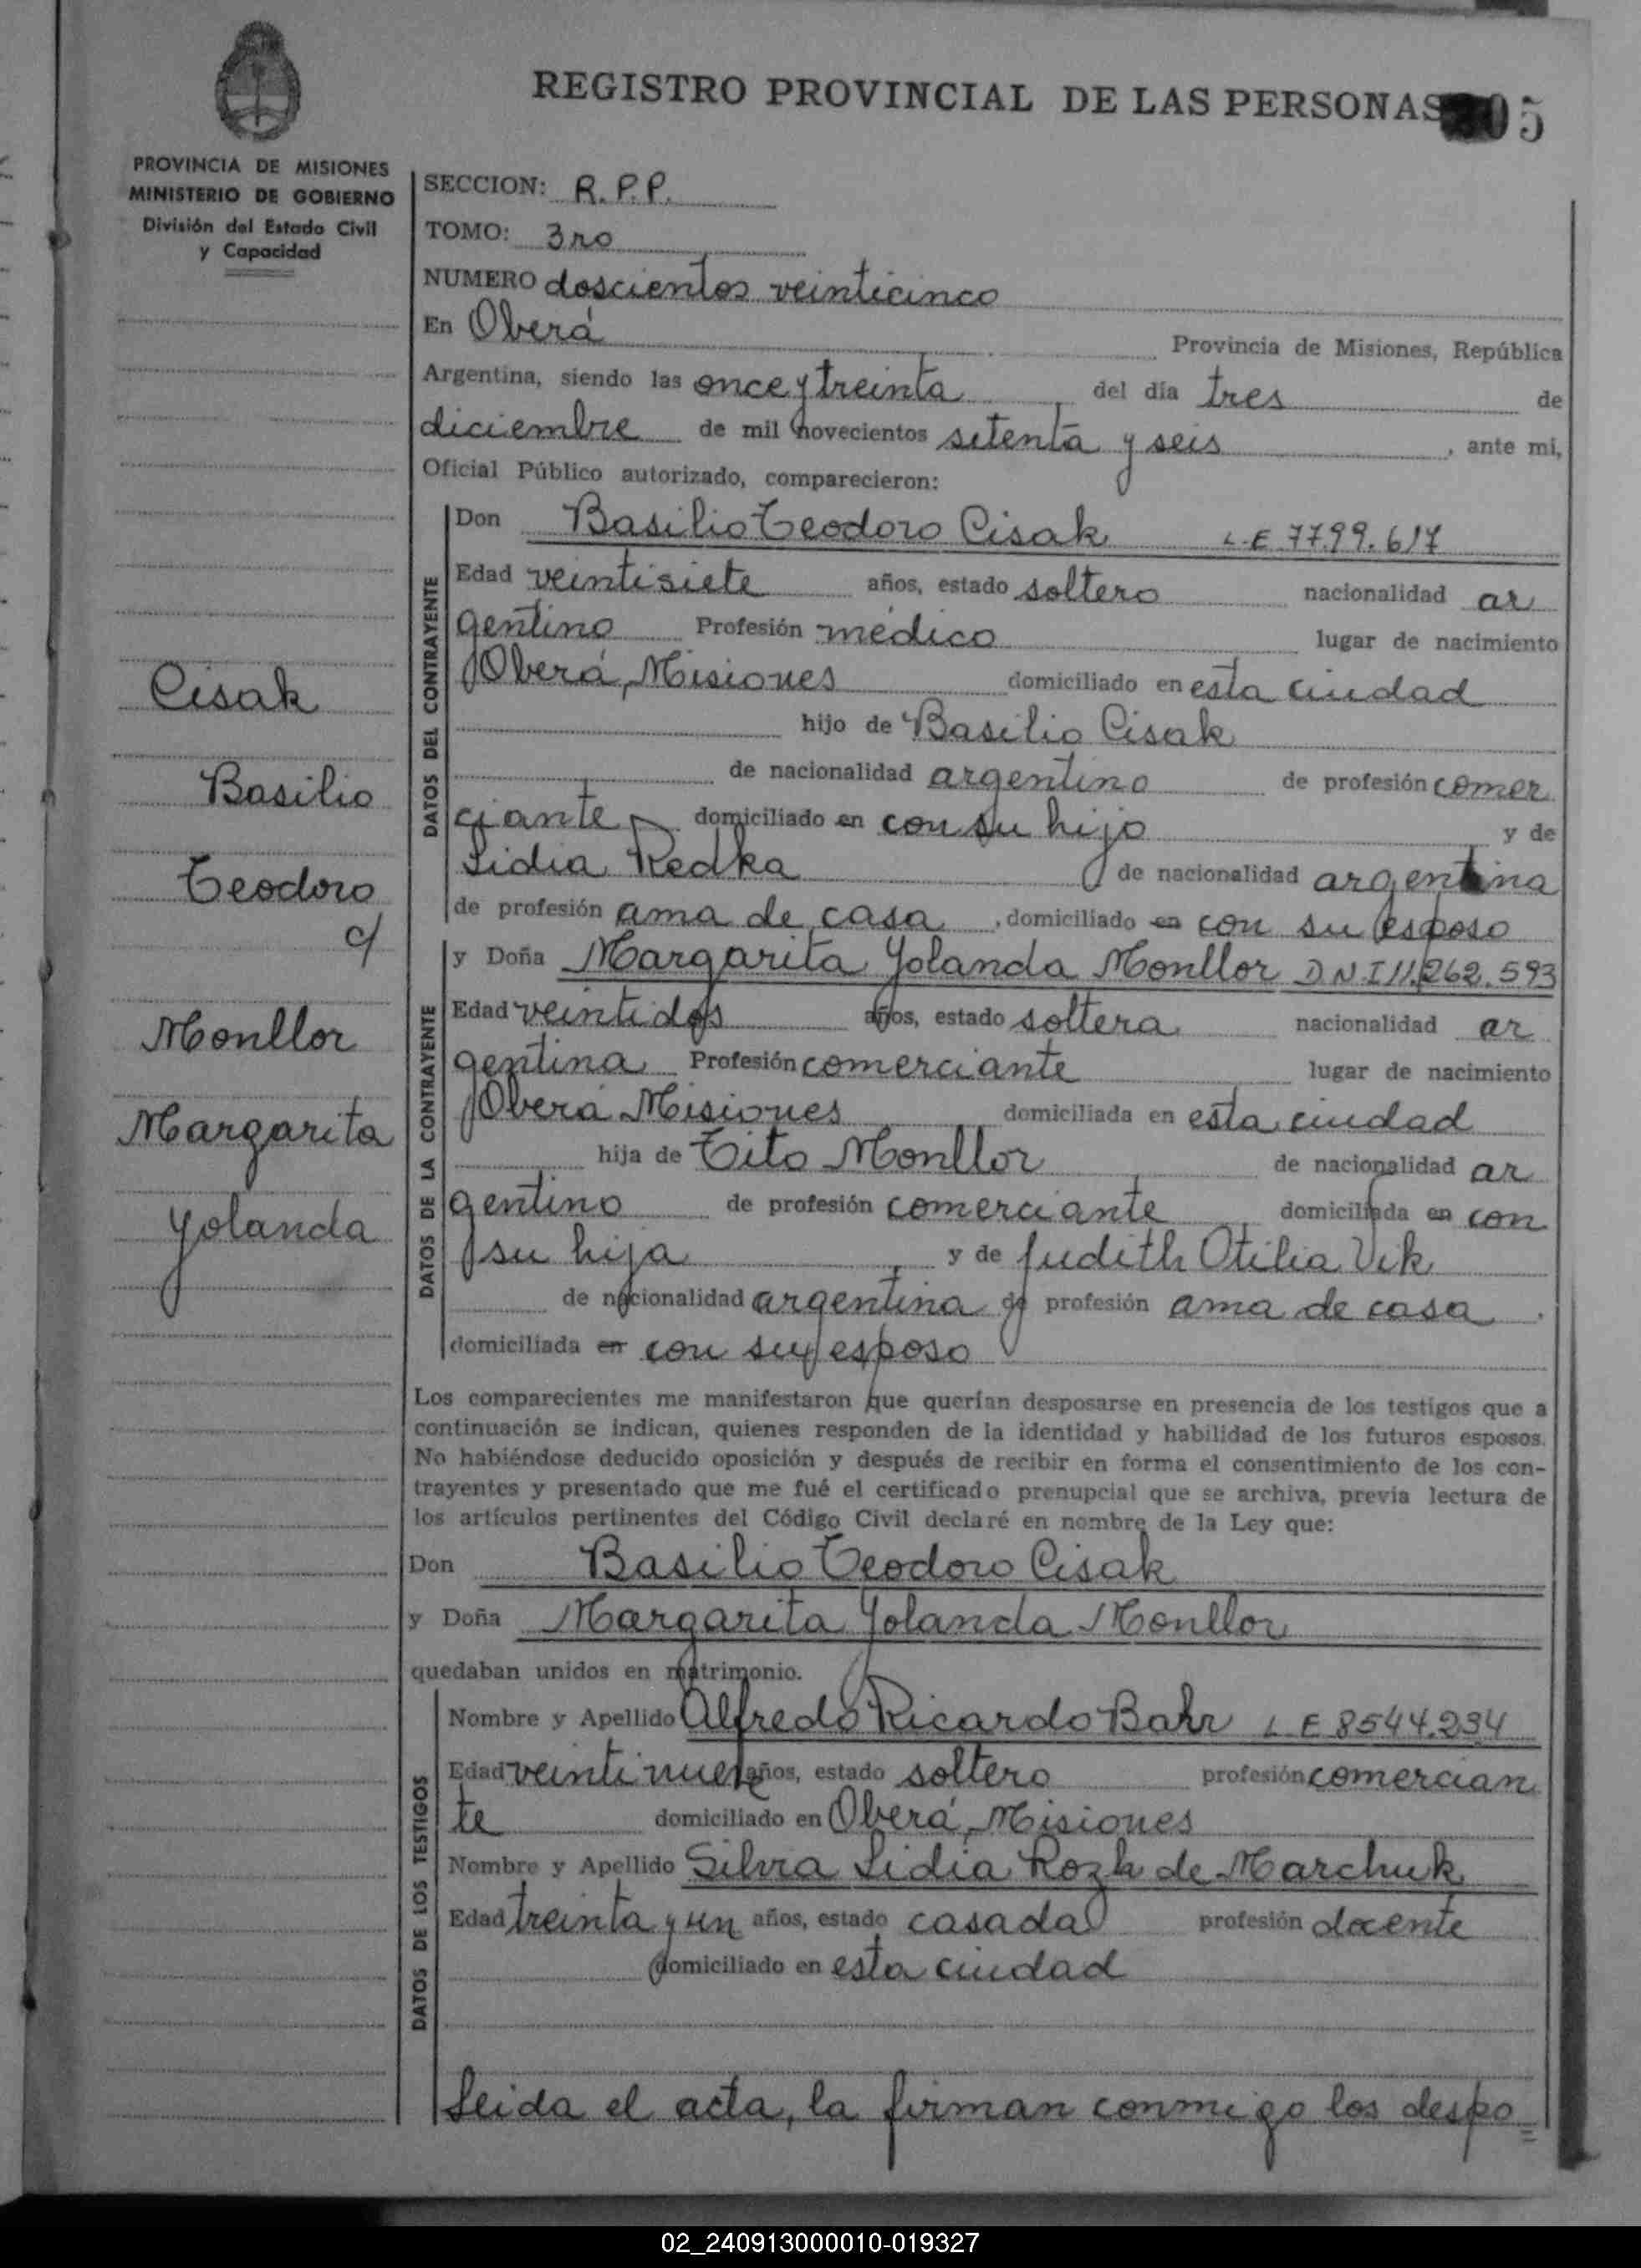 REGISTRO PROVINCIAL DE LAS PERSONAS 05
PROVINCIA DE MISIONES
MINISTERIO DE GOBIERNO
División del Estado Civil
y Capacidad
Cisak
Basilio
Teodoro
c/
Monllor
Margarita
Yolanda
SECCION: R.P.P.
TOMO: 3ro
NUMERO doscientos veinticinco
En Oberá Provincia de Misiones, República
Argentina, siendo las once y treinta del día tres de
diciembre de mil novecientos setenta y seis, ante mi,
Oficial Público autorizado, comparecieron:
DATOS DEL CONTRAYENTE
Don Basilio Teodoro Cisak L.E 7799.617
Edad veintisiete años, estado soltero nacionalidad ar
gentino Profesión médico lugar de nacimiento
Oberá, Misiones domiciliado en esta ciudad
hijo de Basilio Cisak
de nacionalidad argentino de profesión comer
ciante domiciliado en con su hijo y de
Lidia Redka de nacionalidad argentina
de profesión ama de casa, domiciliado en con su esposo
DATOS DE LA CONTRAYENTE
y Doña Margarita Yolanda Monllor D.N.I 11.262.593
Edad veintidos años, estado soltera nacionalidad ar
gentina Profesión comerciante lugar de nacimiento
Oberá Misiones domiciliada en esta ciudad
hija de Tito Monllor de nacionalidad ar
gentino de profesión comerciante domiciliada en con
su hija y de Judith Otilia Vik
de nacionalidad argentina de profesión ama de casa.
domiciliada en con su esposo
Los comparecientes me manifestaron que querían desposarse en presencia de los testigos que a
continuación se indican, quienes responden de la identidad y habilidad de los futuros esposos.
No habiéndose deducido oposición y después de recibir en forma el consentimiento de los con-
trayentes y presentado que me fué el certificado prenupcial que se archiva, previa lectura de
los artículos pertinentes del Código Civil declaré en nombre de la Ley que:
Don Basilio Teodoro Cisak
y Doña Margarita Yolanda Monllor
quedaban unidos en matrimonio.
DATOS DE LOS TESTIGOS
Nombre y Apellido Alfredo Ricardo Bahr L E 8544.234
Edad veintinueve años, estado soltero profesión comercian
te domiciliado en Oberá, Misiones
Nombre y Apellido Silvia Lidia de Marchuk
Edad treinta y un años, estado casada profesión docente
domiciliado en esta ciudad
Leida el acta, la firman conmigo los despo=
02_240913000010-019327